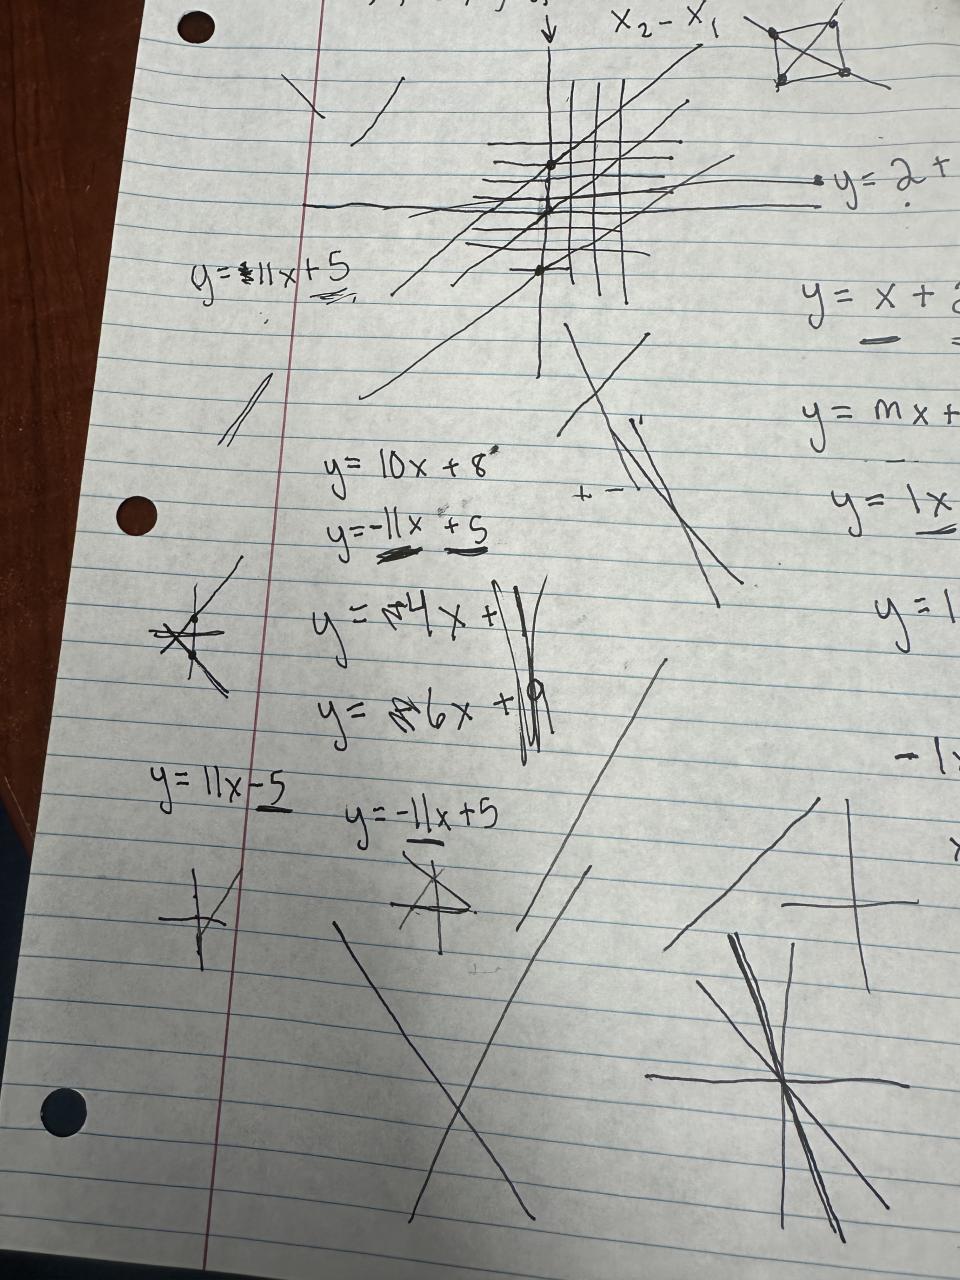 x₂ - x₁
y = 2 +
y = 11x + 5
y = x + 2
y = mx +
y = 10x + 8
y = 1x
y = -11x + 5
+ -
y = 4x +
y = 1
y = 6x +
- 1x
y = 11x - 5
y = -11x + 5